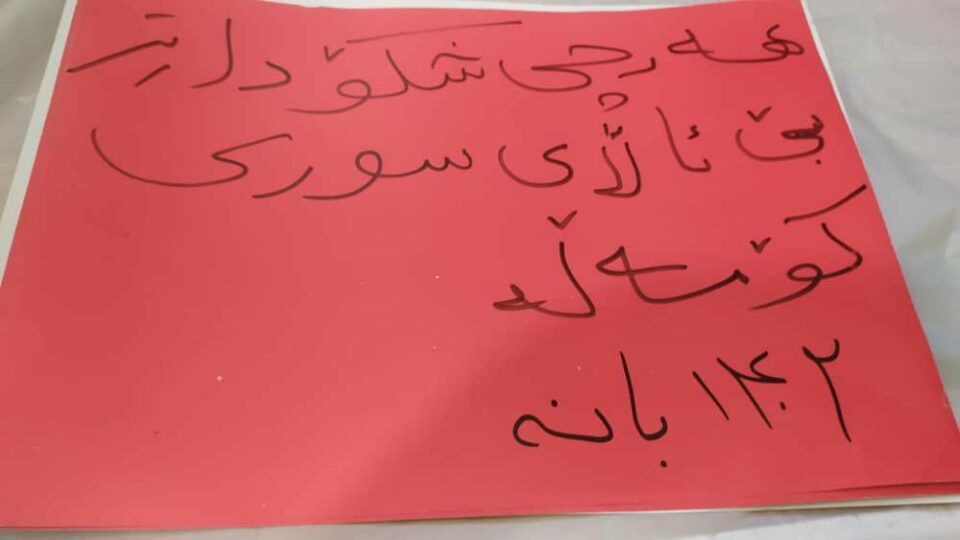 هەرچی شکۆدارتر
بێ ئاڵای سوری
کۆمەڵە
١٤٠٢ بانە